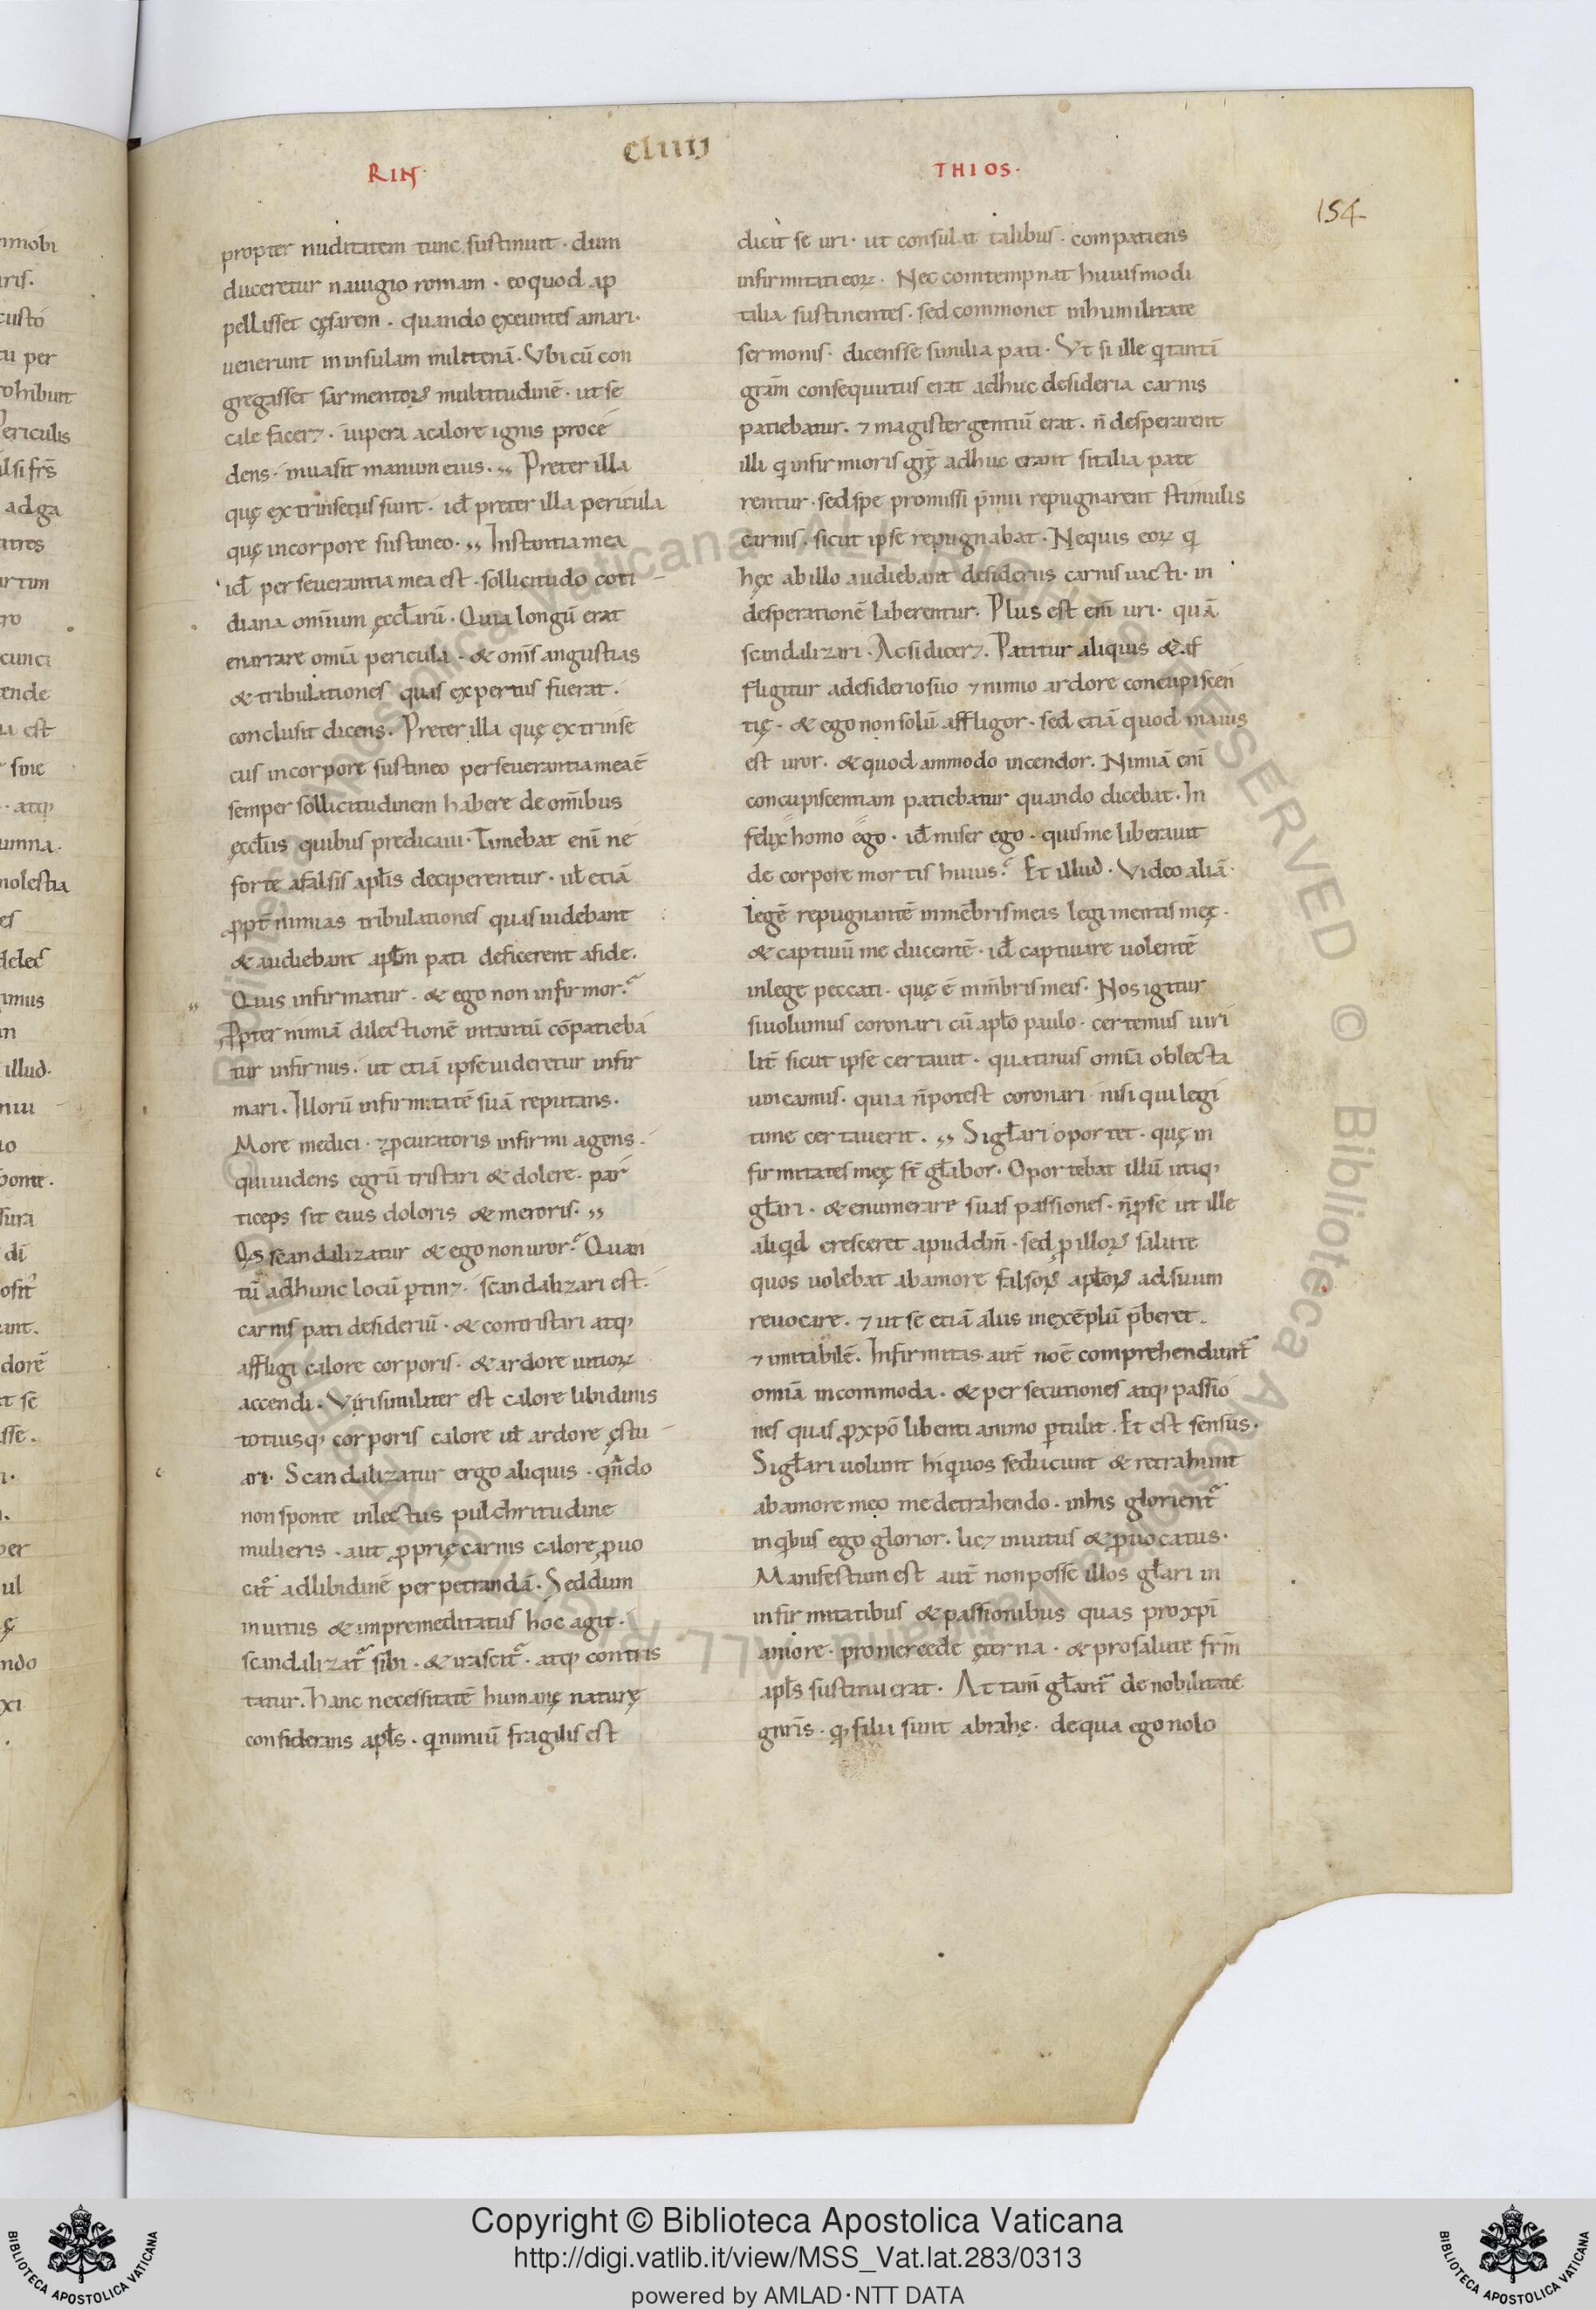 cliiij
RIN·
THIOS·
154
propter nuditatem tunc sustinuit · dum
duceretur nauigio romam · eo quod ap
pellisset cęsarem · quando exeuntes a mari·
uenerunt in insulam militenā · Vbi cū con
gregasset sarmentoꝝ multitudinē · ut se
cale facerꝫ · uipera a calore ignis proce
dens · inuasit manum eius · ,, Preter illa
quę extrinsecus sunt · id̄ preter illa pericula
quę in corpore sustineo · ,, Instantia mea
id̄ perseuerantia mea est · sollicitudo coti
diana omīum ęccl̄arū · Quia longū erat
enarrare omīa pericula · & om̄s angustias
& tribulationes quas expertus fuerat ·
conclusit dicens · Preter illa quę extrinse
cus in corpore sustineo perseuerantia mea ē
semper sollicitudinem habere de om̄ibus
ęccl̄iis quibus predicaui · Timebat enī ne
forte a falsis apl̄is deciperentur · ul̄ etiā
ꝓpt̄ nimias tribulationes quas uidebant
& audiebant apl̄m pati deficerent a fide ·
,, Quis infirmatur · & ego non infirmor?
Ꝓpter nimiā dilectionē intantū cōpatieba
tur infirmis · ut etiā ipse uideretur infir
mari · Illorū infirmitatē suā reputans ·
More medici · ⁊ ꝓcuratoris infirmi agens ·
qui uidens egrū tristari & dolere · par
ticeps sit eius doloris & meroris · ,,
Qis scandalizatur & ego non uror? Quan
tū ad hunc locū ꝑtinꝫ · scandalizari est ·
carnis pati desideriū · & contristari atqꝫ
affligi calore corporis · & ardore uitioꝝ
accendi · Viri similiter est calore libidinis
totiusqꝫ corporis calore ul̄ ardore ęstu
ari · Scandalizatur ergo aliquis · qn̄do
non sponte inlectus pulchritudine
mulieris · aut ꝓprię carnis calore ꝓuo
cat̄ ad libidinē perpetrandā · Sed dum
inuitus & impremeditatus hoc agit ·
scandalizat̄ sibi · & irascit̄ · atqꝫ contris
tatur · hanc necessitatē humanę naturę
considerans apl̄s · qi nimiū fragilis est
dicit se uri · ut consulat talibus · compatiens
infirmitati eoꝝ · Nec comtempnat huiusmodi
talia sustinentes · sed commonet in humilitate
sermonis · dicens se similia pati · Vt si ille qi tantā
grām consequutus erat adhuc desideria carnis
patiebatur · ⁊ magister gentiū erat · n̄ desperarent
illi qi infirmioris grę̄ adhuc erant si talia pate
rentur · sed spe promissi p̄mii repugnarent stimulis
carnis · sicut ipse repugnabat · Ne quis eoꝝ qi
hęc ab illo audiebant desideriis carnis uicti · in
desperationē liberentur · Plus est enī uri · quā
scandalizari · Ac si dicerꝫ · Patitur aliquis & af
fligitur a desiderio suo ⁊ nimio ardore concupiscen
tię · & ego non solū affligor · sed etiā quod maius
est uror · & quodammodo incendor · Nimiā enī
concupiscentiam patiebatur quando dicebat · In
felix homo ego · id̄ miser ego · quis me liberauit
de corpore mortis huius? Et illud · Video aliā
legē repugnantē in mēbris meis legi mentis meę ·
& captiuū me ducentē · id̄ captiuare uolentē
in lege peccati · quę ē in m̄bris meis · Nos igitur
si uolumus coronari cū apl̄o paulo · certemus uiri
lit̄ sicut ipse certauit · quatinus omīa oblecta
uincamus · quia n̄ potest coronari nisi qui legi
time certauerit · ,, Si gl̄ari oportet · quę in
firmitates meę st̄ gl̄abor · Oportebat illū utiqꝫ
gl̄ari · & enumerare suas passiones · n̄ ꝓ se ut ille
aliqid cresceret apud dm̄ · sed ꝓ illoꝝ salute
quos uolebat ab amore falsoꝝ apl̄oꝝ ad suum
reuocare · ⁊ ut se etiā aliis in exēplū p̄beret ·
⁊ imitabilē · Infirmitas aut̄ noē comprehendunt̄
omīa incommoda · & persecutiones atqꝫ passio
nes quas ꝓ xpō libenti animo ꝑtulit · Et est sensus ·
Si gl̄ari uolunt hi quos seducunt & retrahunt
ab amore meo me detrahendo · in his glorient̄
in qibus ego glorior · licꝫ inuitus & ꝓuocatus ·
Manifestum est aut̄ non posse illos gl̄ari in
infirmitatibus & passionibus quas pro xpī
amore · pro mercede ęterna · & pro salute frm̄
apl̄s sustinuerat · At tam̄ gl̄ant̄ de nobilitate
gnr̄is · qꝫ filii sunt abrahę · de qua ego nolo
Copyright © Biblioteca Apostolica Vaticana
http://digi.vatlib.it/view/MSS_Vat.lat.283/0313
powered by AMLAD·NTT DATA
BIBLIOTECA APOSTOLICA VATICANA
BIBLIOTECA APOSTOLICA VATICANA